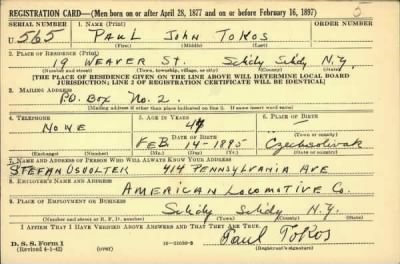 REGISTRATION CARD—(Men born on or after April 28, 1877 and on or before February 16, 1897)
SERIAL NUMBER 1. NAME (Print) ORDER NUMBER
U 565 PAUL JOHN TOKOS
(First) (Middle) (Last)
2. PLACE OF RESIDENCE (Print)
19 WEAVER ST. Schdy Schdy N.Y.
(Number and street) (Town, township, village, or city) (County) (State)
[THE PLACE OF RESIDENCE GIVEN ON THE LINE ABOVE WILL DETERMINE LOCAL BOARD
JURISDICTION; LINE 2 OF REGISTRATION CERTIFICATE WILL BE IDENTICAL]
3. MAILING ADDRESS
P.O. Box No. 2.
[Mailing address if other than place indicated on line 2. If same insert word same]
4. TELEPHONE 5. AGE IN YEARS 6. PLACE OF BIRTH
NONE 47
DATE OF BIRTH (Town or county)
FEB. 14-1895 Czechoslovak
(Exchange) (Number) (Mo.) (Day) (Yr.) (State or country)
7. NAME AND ADDRESS OF PERSON WHO WILL ALWAYS KNOW YOUR ADDRESS
STEFAN 414 PENNSYLVANIA AVE
8. EMPLOYER'S NAME AND ADDRESS
AMERICAN LOCOMOTIVE Co.
9. PLACE OF EMPLOYMENT OR BUSINESS
Schdy Schdy N.Y.
(Number and street or R. F. D. number) (Town) (County) (State)
I AFFIRM THAT I HAVE VERIFIED ABOVE ANSWERS AND THAT THEY ARE TRUE.
D. S. S. Form 1
(Revised 4-1-42) (over) Paul Tokos
(Registrant's signature)